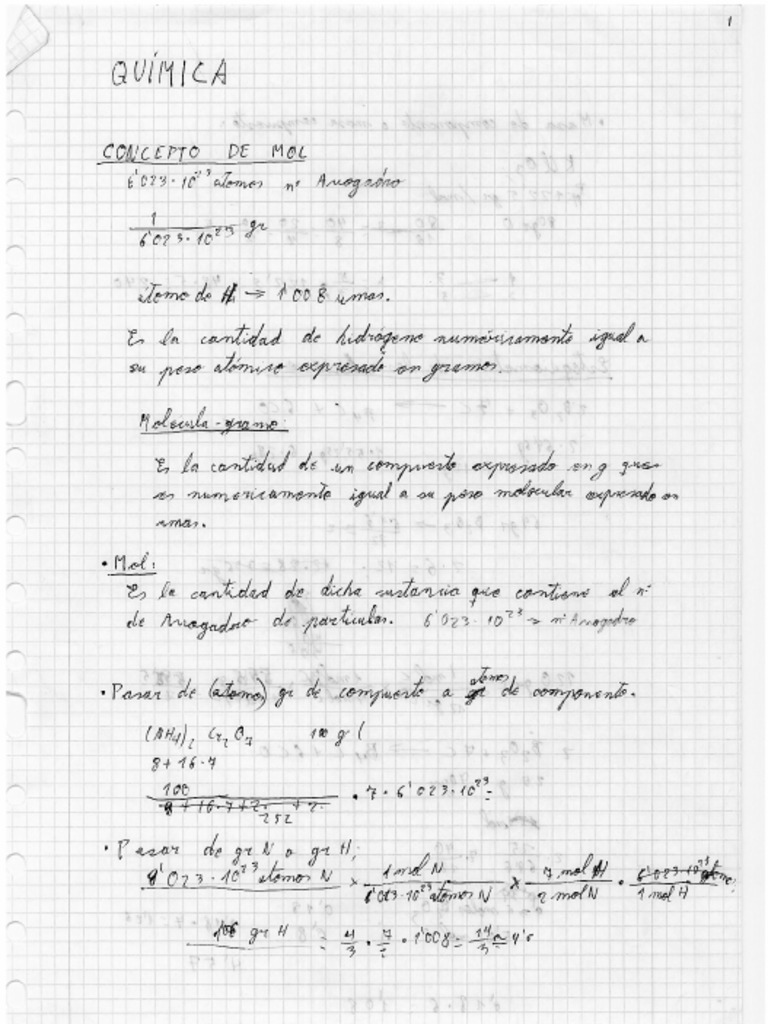 1
QUÍMICA
CONCEPTO DE MOL
6'023·10²³ átomos nº Avogadro
1 / 6'023·10²³ gr
átomo de H → 1'008 umas.
Es la cantidad de hidrógeno numéricamente igual a
su peso atómico expresado en gramos.
Molécula-gramo:
Es la cantidad de un compuesto expresado en g que
es numericamente igual a su peso molecular expresado en
umas.
• Mol:
Es la cantidad de dicha sustancia que contiene el nº
de Avogadro de particulas. 6'023·10²³ → nº Avogadro
• Pasar de (átomos) gr de compuesto a átomos de componente.
(NH4)2 Cr2O7 100 g (
8+16·7
100 / 252 · 7 · 6'023·10²³ =
• Pasar de gr N a gr H;
6'023·10²³ átomos N × 1 mol N / 6'023·10²³ átomos N × 7 mol H / 2 mol N · 6'023·10²³ / 1 mol H
gr H = 4/3 · 7/2 · 1'008 = 14/3